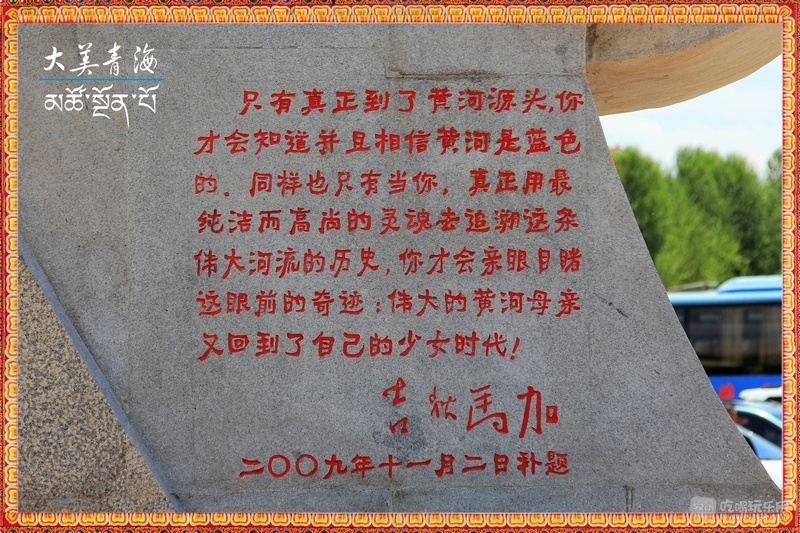 大美青海
མཚོ་སྔོན་པོ
只有真正到了黄河源头,你
才会知道并且相信黄河是蓝色
的。同样也只有当你,真正用最
纯洁而高尚的灵魂去追溯这条
伟大河流的历史,你才会亲眼目睹
这眼前的奇迹:伟大的黄河母亲
又回到了自己的少女时代!
吉狄马加
二〇〇九年十一月二日补题
吃喝玩乐